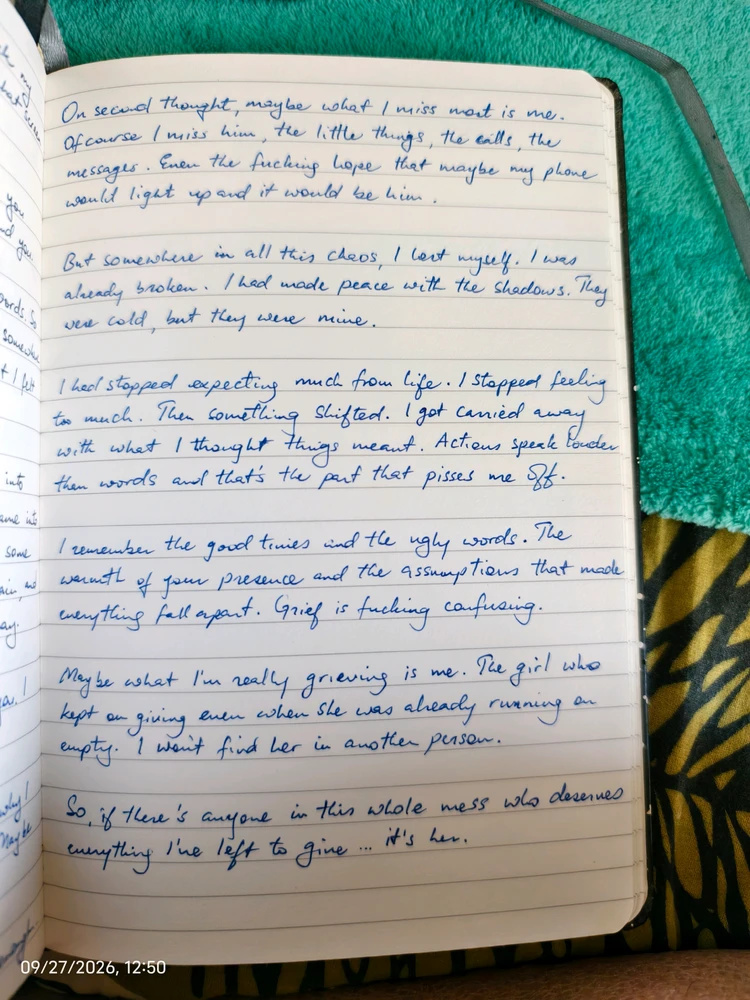 On second thought, maybe what I miss most is me.
Of course I miss him, the little things, the calls, the
messages. Even the fucking hope that maybe my phone
would light up and it would be him.
But somewhere in all this chaos, I lost myself. I was
already broken. I had made peace with the shadows. They
were cold, but they were mine.
I had stopped expecting much from life. I stopped feeling
too much. Then something shifted. I got carried away
with what I thought things meant. Actions speak louder
then words and that's the part that pisses me off.
I remember the good times and the ugly words. The
warmth of your presence and the assumptions that made
everything fall apart. Grief is fucking confusing.
Maybe what I'm really grieving is me. The girl who
kept on giving even when she was already running on
empty. I won't find her in another person.
So, if there's anyone in this whole mess who deserves
everything I've left to give ... it's her.
my
you
words. So
I felt
into
came into
some
and
why I
Maybe
09/27/2026, 12:50